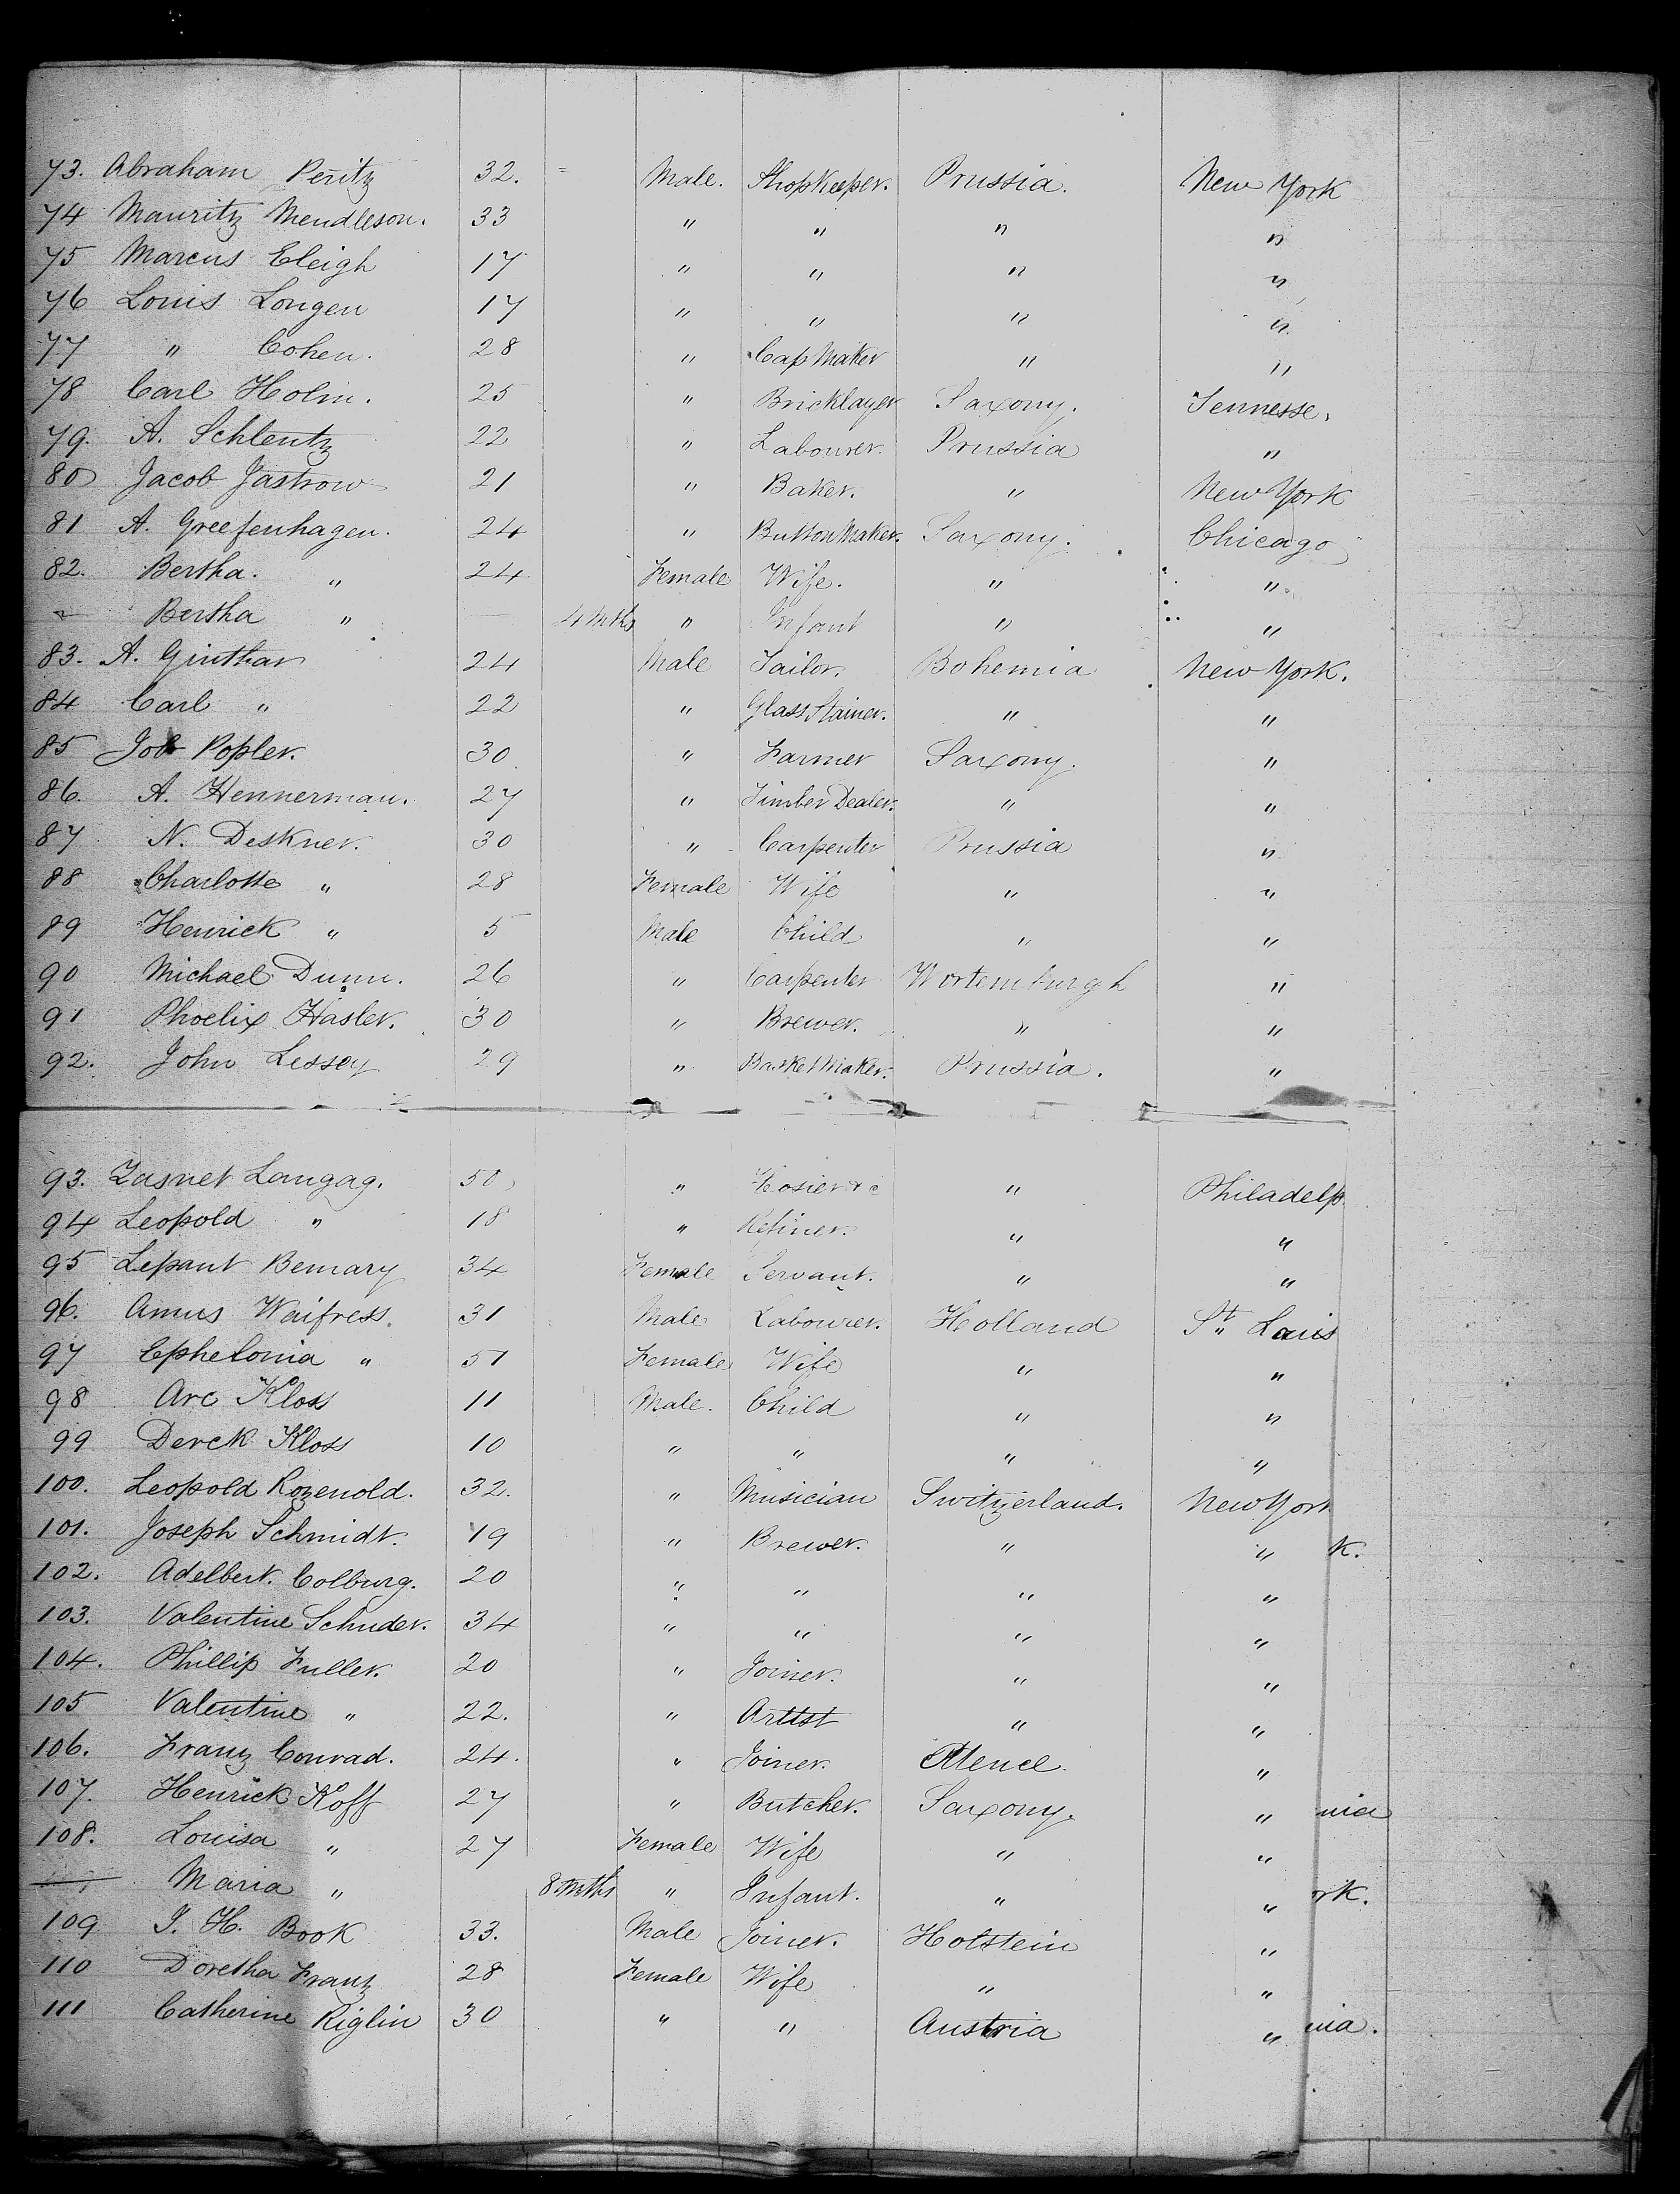 73. Abraham Peritz 32. Male. Shopkeeper. Prussia. New York
74 Mauritz Mendleson. 33 " " " "
75 Marcus Eleigh 17 " " " "
76 Louis Longen 17 " " " "
77 " Cohen. 28 " Cap Maker " "
78 Carl Holm. 25 " Bricklayer Saxony. Tennesse.
79. A. Schlentz 22 " Labourer. Prussia "
80 Jacob Jastrow 21 " Baker. " New York
81 A. Greefenhagen. 24 " Button Maker. Saxony. Chicago
82. Bertha. " 24 Female Wife. " "
Bertha " 4 Mths " Infant " "
83. A. Ginthar 24 Male Tailor. Bohemia New York.
84 Carl " 22 " Glass Stainer. " "
85 Job Popler. 30 " Farmer Saxony. "
86. A. Hennerman. 27 " Timber Dealer. " "
87 N. Deskner. 30 " Carpenter Prussia "
88 Charlotte " 28 Female Wife " "
89 Henrick " 5 Male Child " "
90 Michael Dunn. 26 " Carpenter Wortemburgh "
91 Phoelix Hasler. 30 " Brewer. " "
92. John Lessey 29 " Basket Maker. Prussia. "
93. Zasnet Langag. 50 " Hosier &c " Philadelp
94 Leopold " 18 " Refiner. " "
95 Lepant Bemary 34 Female Servant. " "
96. Amus Waifress. 31 Male Labourer. Holland St. Louis
97 Ephelonia " 51 Female Wife " "
98 Arc Kloss 11 Male. Child " "
99 Derck Kloss 10 " " " "
100. Leopold Rozenold. 32. " Musician Switzerland. New York
101. Joseph Schmidt. 19 " Brewer. " " k.
102. Adelbert. Colburg. 20 " " " "
103. Valentine Schuder. 34 " " " "
104. Phillip Fuller. 20 " Joiner. " "
105 Valentine " 22. " Artist " "
106. Franz Conrad. 24. " Joiner. "
107. Henrick Koff 27 " Butcher. Saxony. " nia
108. Louisa " 27 Female Wife " "
Maria " 8 Mths " Infant. " " rk.
109 J. H. Book 33. Male Joiner. Holstein "
110 Doretha Franz 28 Female Wife " "
111 Catherine Riglin 30 " " Austria " nia.